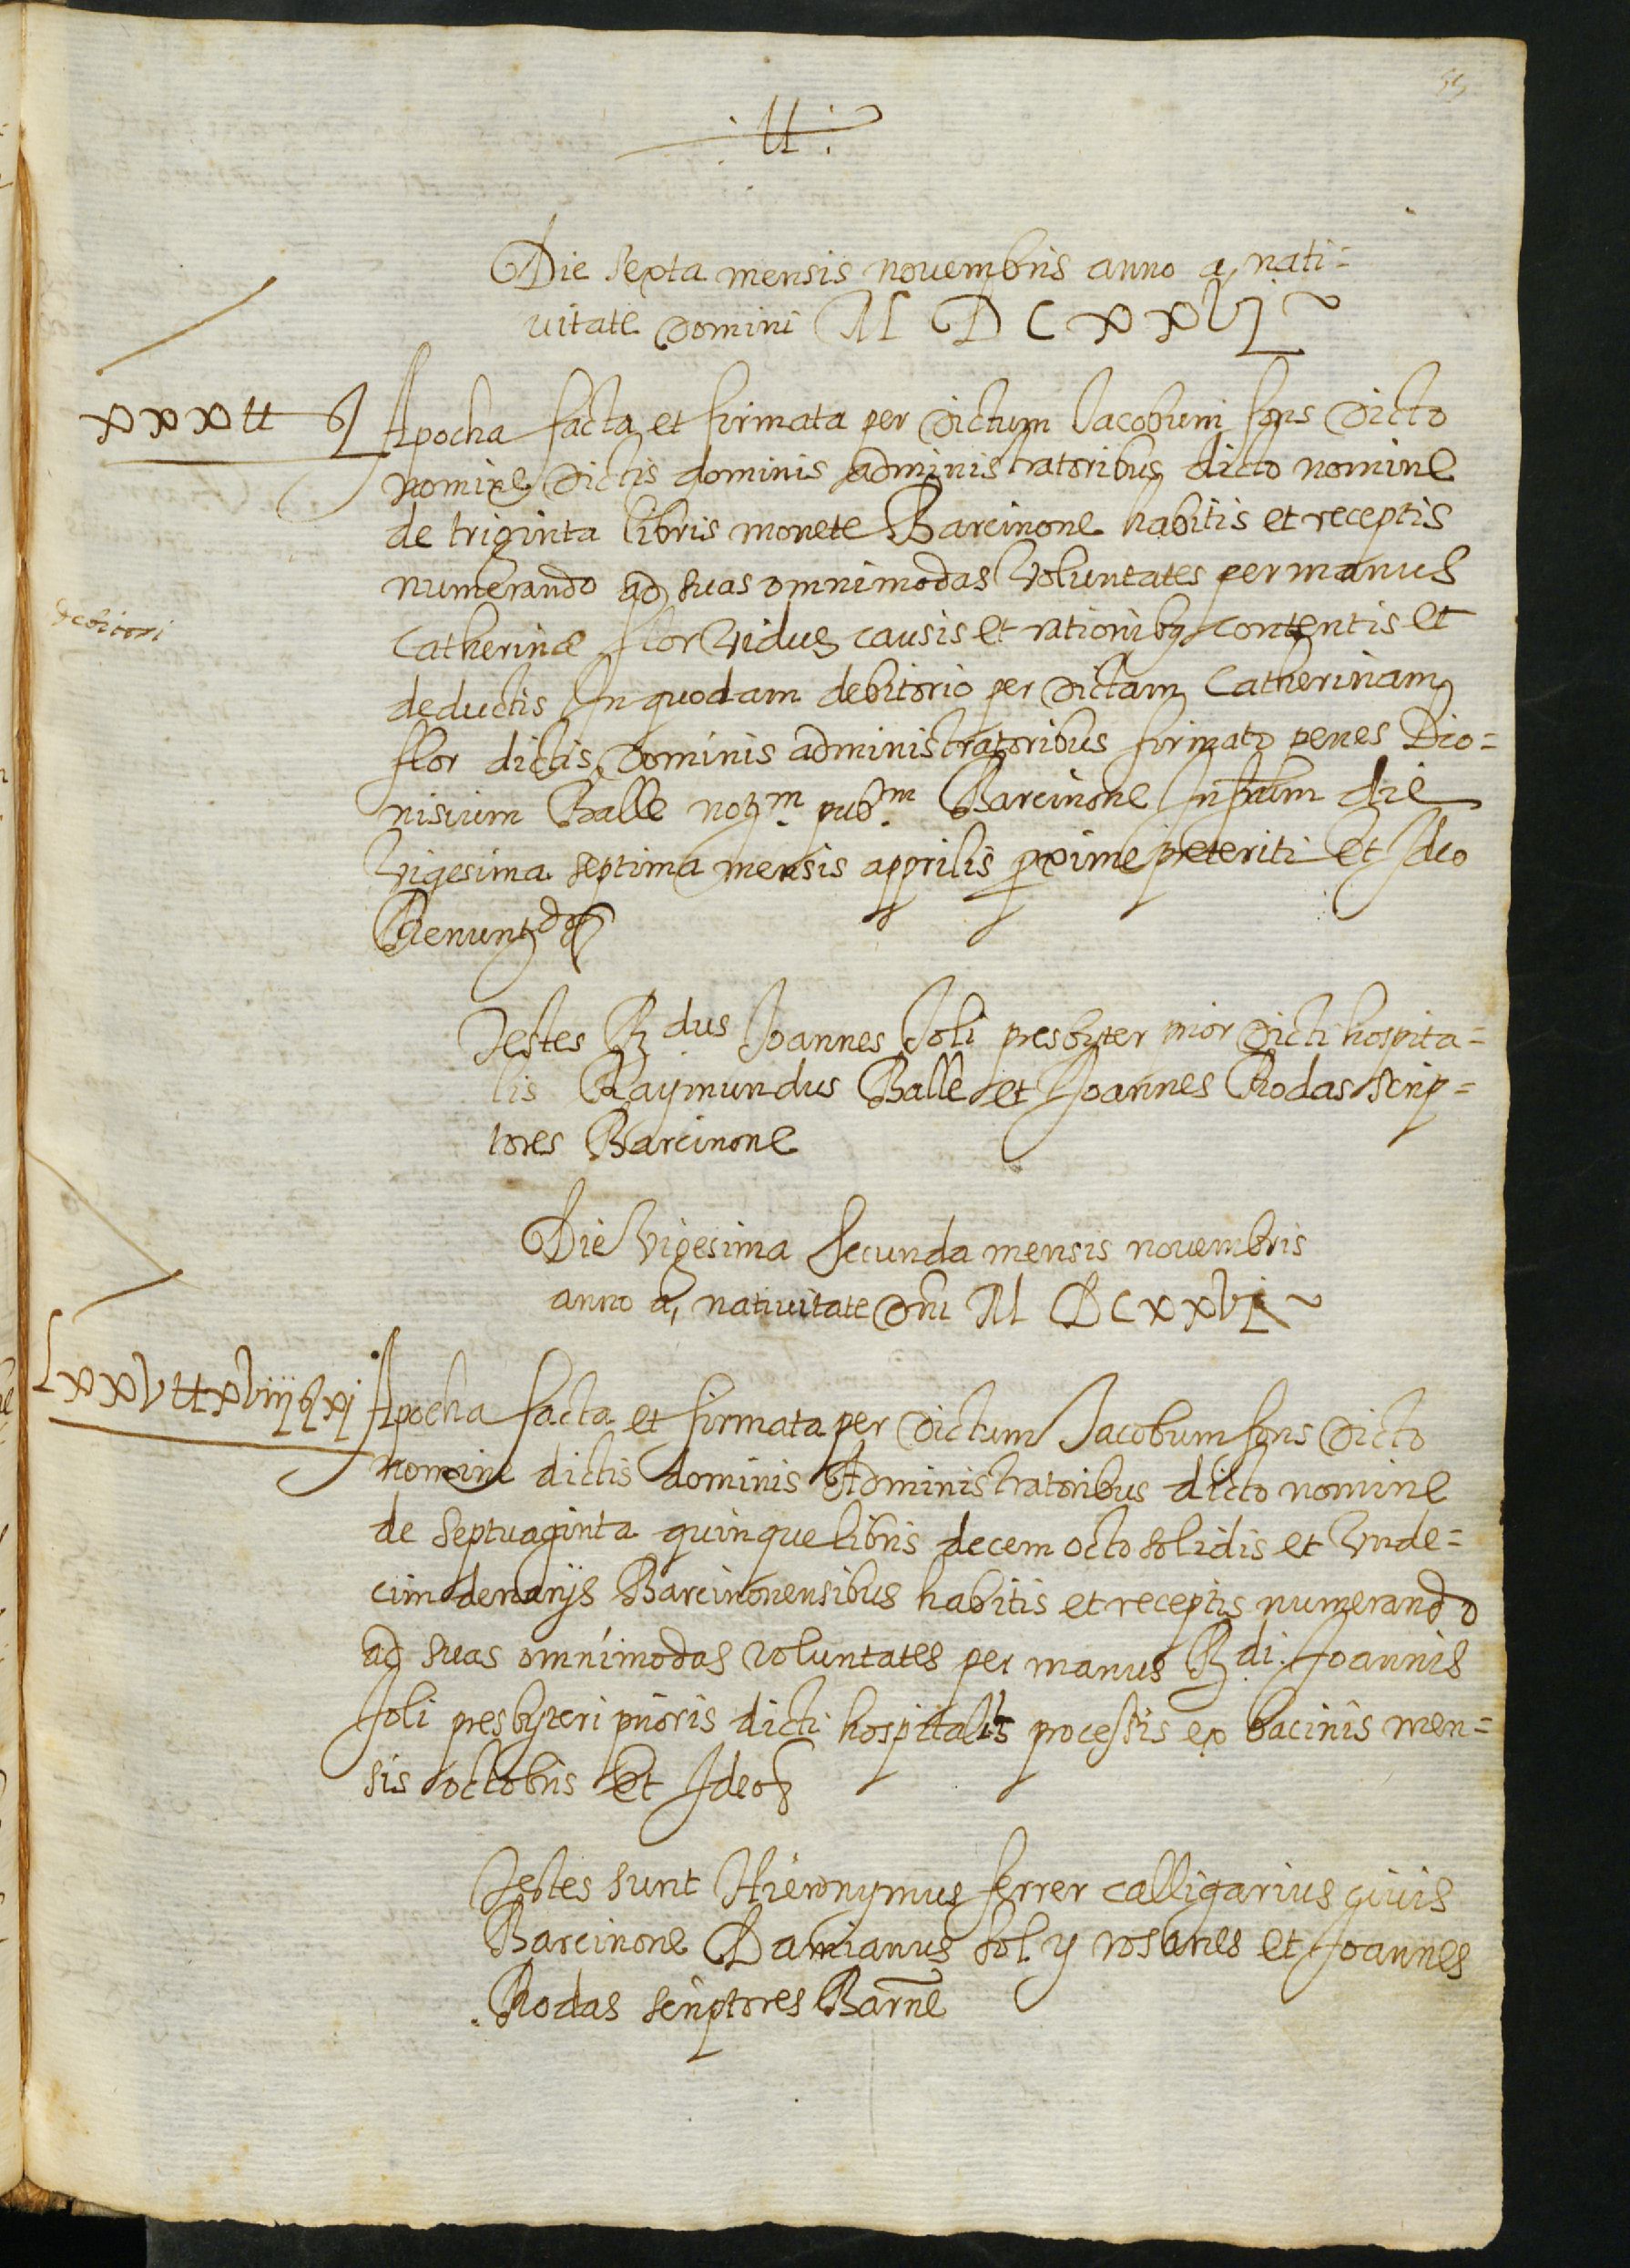 55
.tt.
Die sexta mensis nouembris anno a nati=
uitate domini M D C x x vj
xxxtt
Apocha facta et firmata per dictum Jacobum fons dicto
nomine dictis dominis administratoribus dicto nomine
de triginta libris monete Barcinone habitis et receptis
numerando ad suas omnimodas voluntates per manus
debitori
Catherinæ flor viduę causis et rationibꝫ contentis et
deductis In quodam debitorio per dictam Catherinam
flor dictis dominis administratoribus firmato penes Dio=
nisium Balle notm. pubm. Barcinone Infrūm die
vigesima septima mensis apprilis proxime preteriti Et Ideo
Renuntdo
Testes Rdus Joannes Joli presbyter prior dicti hospita=
lis Raymundus Balle et Joannes Rodas scrip=
tores Barcinone
Die vigesima secunda mensis nouembris
anno a, natiuitate dñi M D C x x vj
Lxxvttxviijsxj
Apocha facta et firmata per dictum Jacobum fons dicto
nomine dictis dominis Administratoribus dicto nomine
de septuaginta quinque libris decem octo solidis et vnde=
cim denarijs Barcinonensibus habitis et receptis numerando
ad suas omnimodas voluntates per manus Rdi. Joannis
Joli presbyteri prioris dicti hospitalis processis ex bacinis men=
sis octobris Et Ideo
Testes sunt Hieronymus ferrer calligarius ciuis
Barcinone Damianus Sol y rosanes et Joannes
Rodas scriptores Barñe